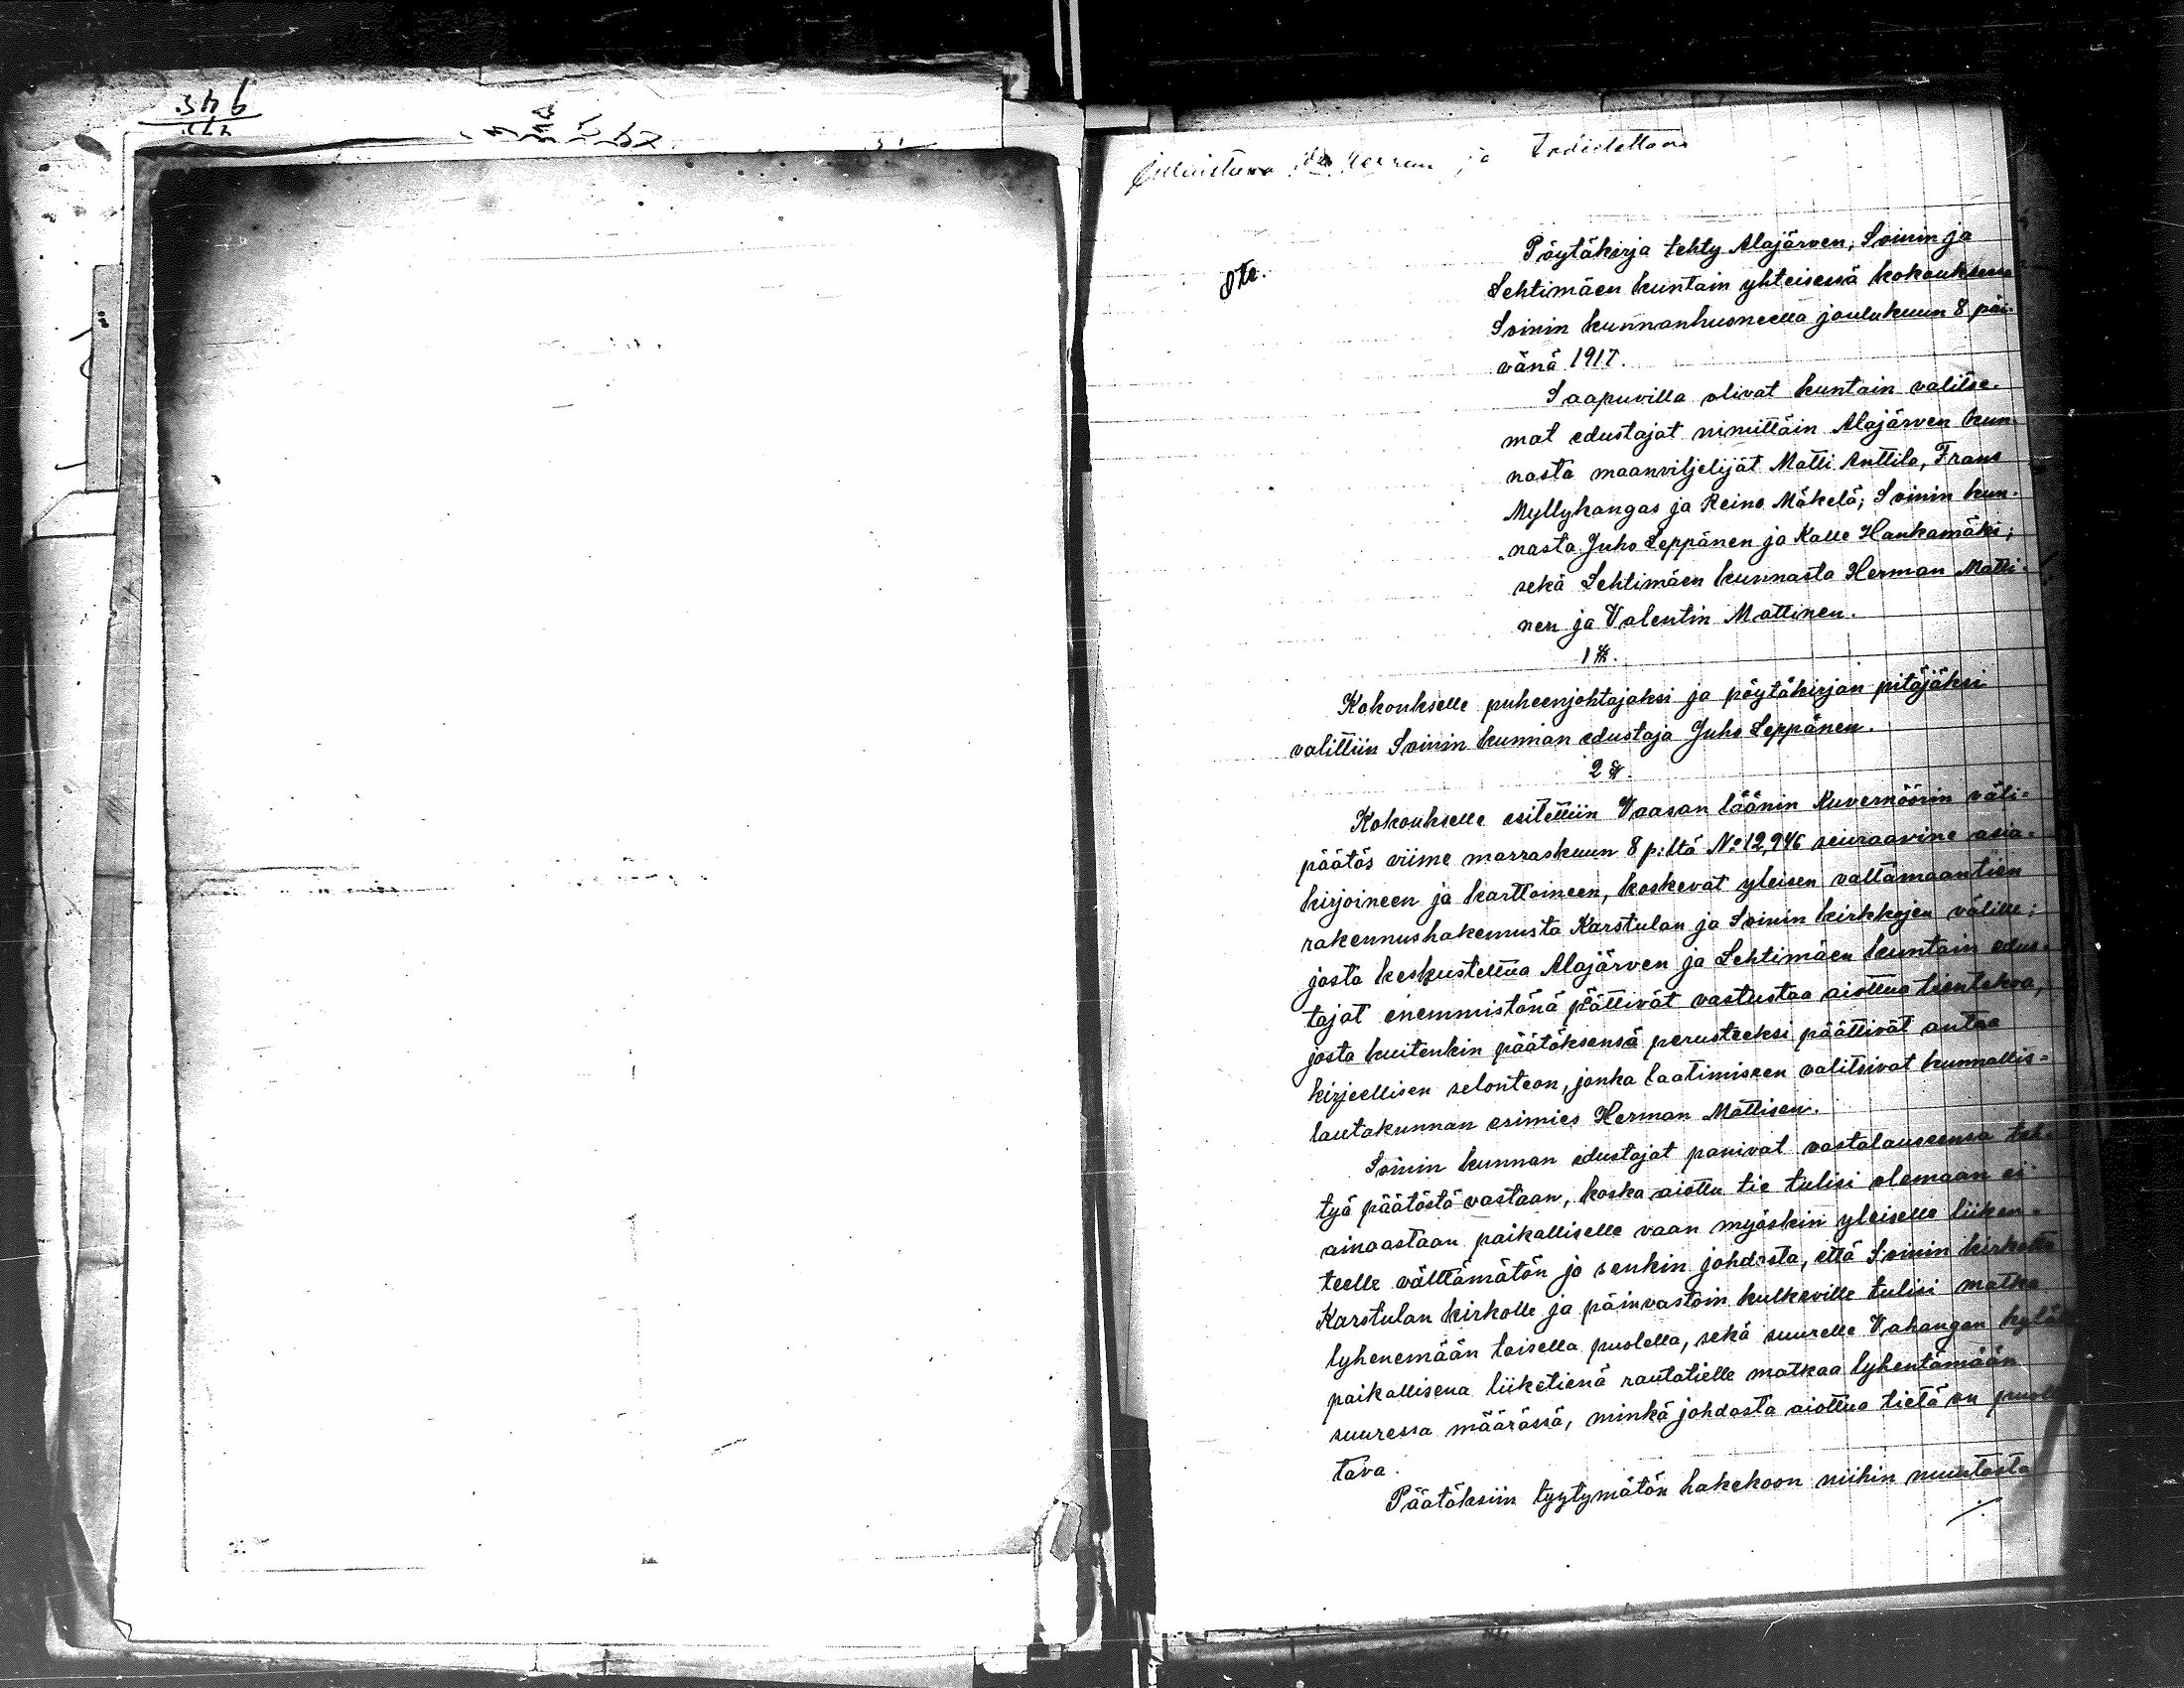 Ote.
Pöytäkirja tehty Alajärven, Soinin ja
Lehtimäen kuntain yhteisessä kokouksessa
Soinin kunnanhuoneella joulukuun 8 päi-
vänä 1917.
Saapuvilla olivat kuntain valitse-
mat edustajat nimittäin Alajärven kun-
nasta maanviljelijät Matti Anttila, Frans
Myllykangas ja Reino Mäkelä; Soinin kun-
nasta Juho Leppänen ja Kalle Hankamäki;
sekä Lehtimäen kunnasta Herman Matti-
nen ja Valentin Mattinen.
1 §.
Kokoukselle puheenjohtajaksi ja pöytäkirjan pitäjäksi
valittiin Soinin kunnan edustaja Juho Leppänen.
2 §.
Kokoukselle esitettiin Vaasan läänin Kuvernöörin väli-
päätös viime marraskuun 8 p:ltä No 12,946 seuraavine asia-
kirjoineen ja karttoineen, koskevat yleisen valtamaantien
rakennushakemusta Karstulan ja Soinin kirkkojen välille;
josta keskusteltua Alajärven ja Lehtimäen kuntain edus-
tajat enemmistönä päättivät vastustaa aiottua tientekoa,
josta kuitenkin päätöksensä perusteeksi päättivät antaa
kirjeellisen selonteon, jonka laatimiseen valitsivat kunnallis-
lautakunnan esimies Herman Mattisen.
Soinin kunnan edustajat panivat vastalauseensa teh-
tyä päätöstä vastaan, koska aiottu tie tulisi olemaan ei
ainoastaan paikalliselle vaan myöskin yleiselle liiken-
teelle välttämätön jo senkin johdosta, että Soinin kirkolta
Karstulan kirkolle ja päinvastoin kulkeville tulisi matka
lyhenemään toisella puolella, sekä suurelle Vahangan kylälle
paikallisena liiketienä rautatielle matkaa lyhentämään
suuressa määrässä, minkä johdosta aiottua tietä on puollet-
tava.
Päätöksiin tyytymätön hakekoon niihin muutosta